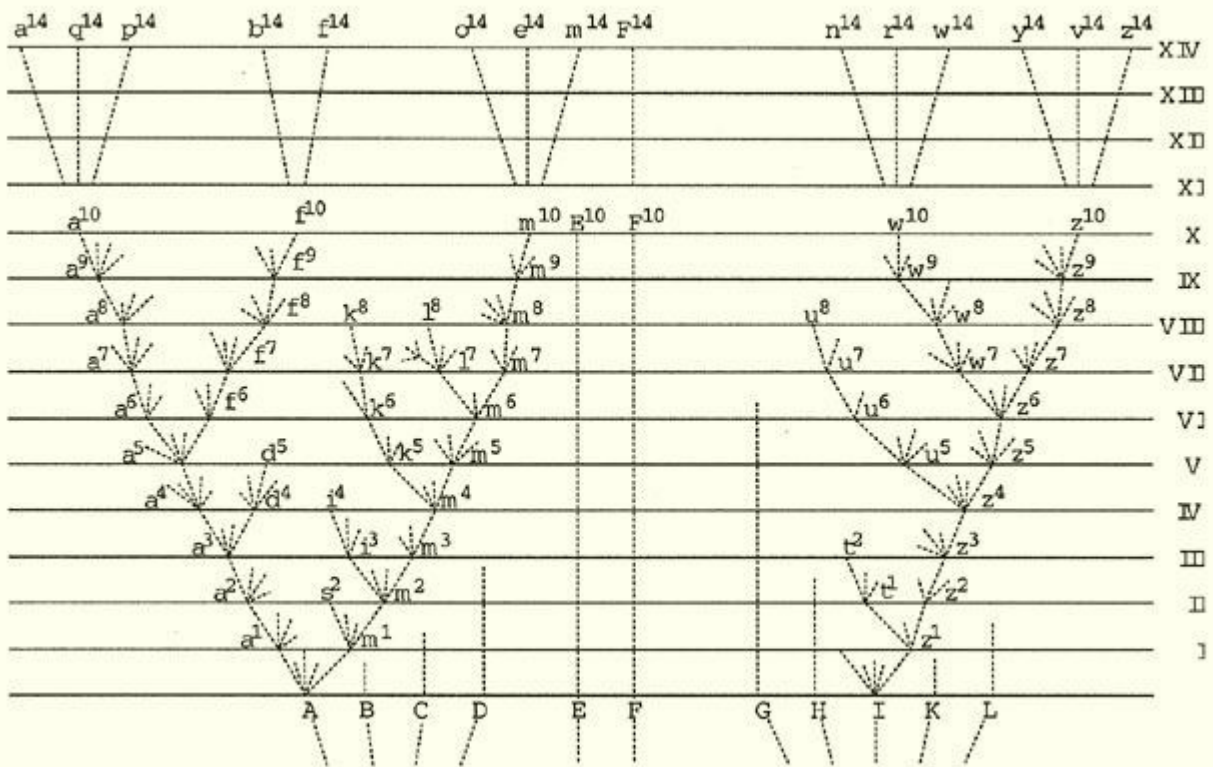 a¹⁴ q¹⁴ p¹⁴ b¹⁴ f¹⁴ o¹⁴ e¹⁴ m¹⁴ F¹⁴ n¹⁴ r¹⁴ w¹⁴ y¹⁴ v¹⁴ z¹⁴
XIV
XIII
XII
XI
a¹⁰ f¹⁰ m¹⁰ E¹⁰ F¹⁰ w¹⁰ z¹⁰
X
a⁹ f⁹ m⁹ w⁹ z⁹
IX
a⁸ f⁸ k⁸ l⁸ m⁸ u⁸ w⁸ z⁸
VIII
a⁷ f⁷ k⁷ l⁷ m⁷ u⁷ w⁷ z⁷
VII
a⁶ f⁶ k⁶ m⁶ u⁶ z⁶
VI
a⁵ d⁵ k⁵ m⁵ u⁵ z⁵
V
a⁴ d⁴ i⁴ m⁴ z⁴
IV
a³ i³ m³ t² z³
III
a² s² m² t¹ z²
II
a¹ m¹ z¹
I
A B C D E F G H I K L